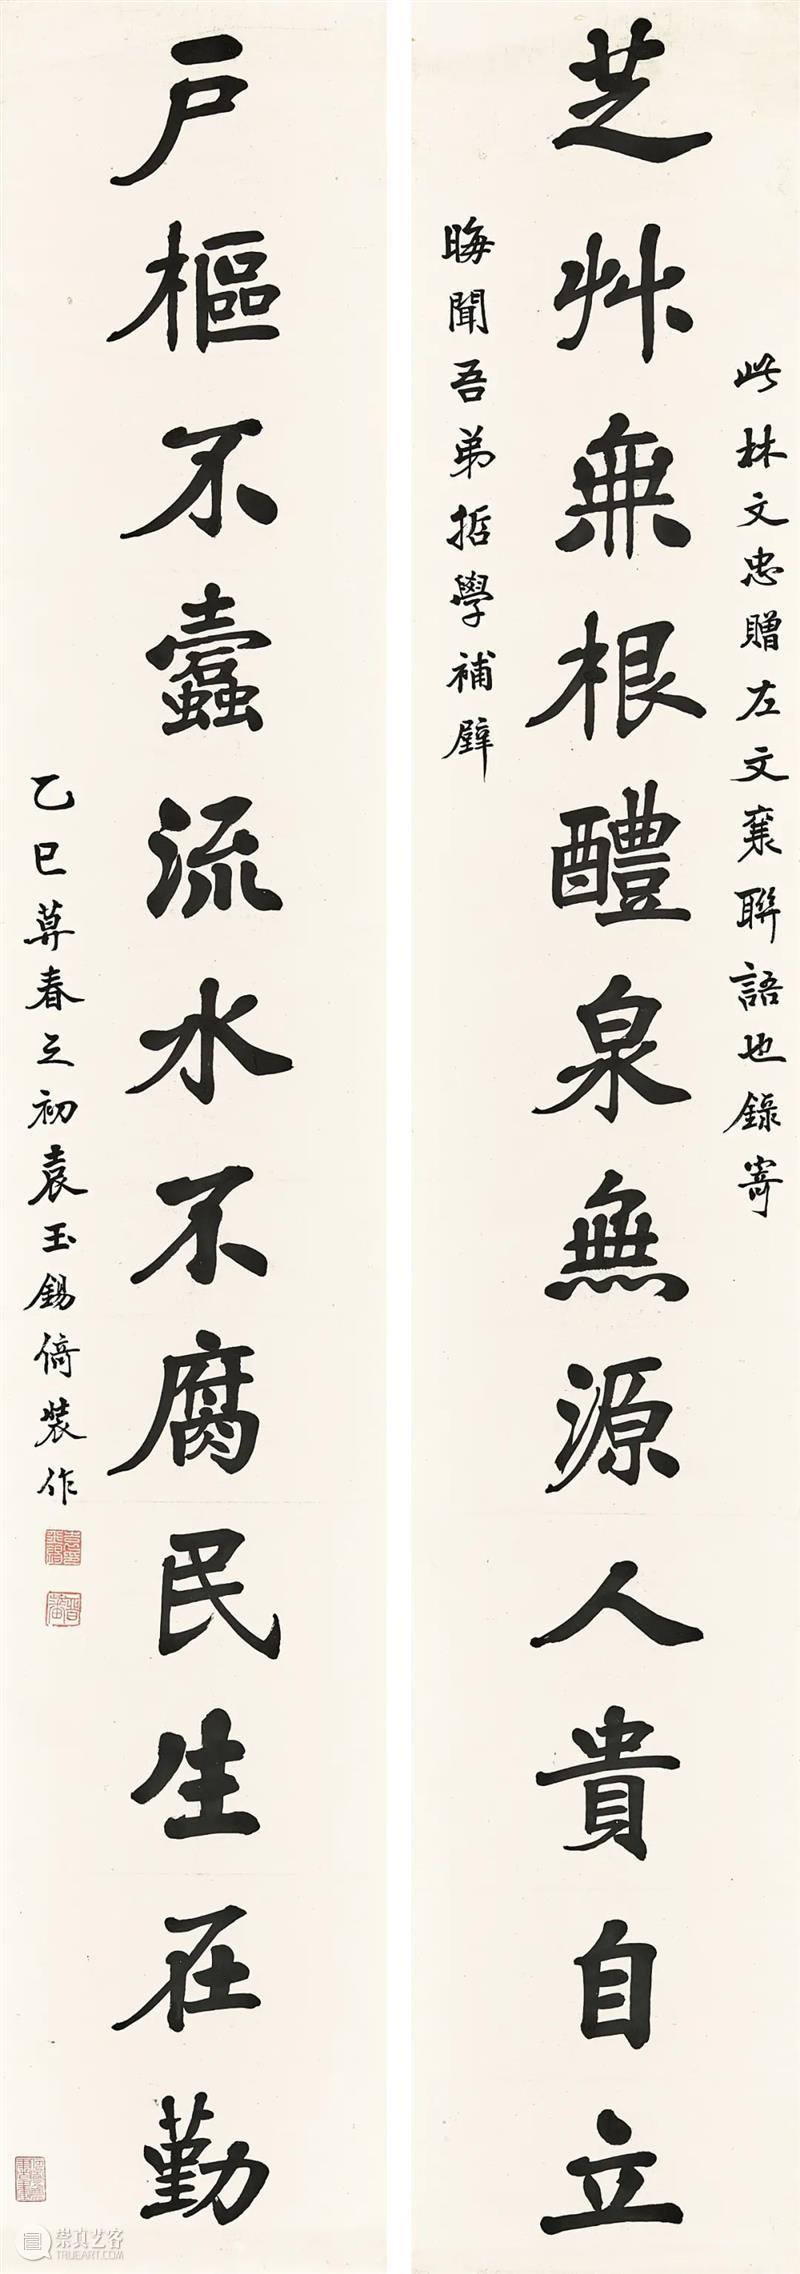 芝艸無根醴泉無源人貴自立
此林文忠贈左文襄聯語也錄寄
晦聞吾弟哲學補壁
戶樞不蠹流水不腐民生在勤
乙巳莫春之初袁玉錫倚裝作
崇真艺客
TRUEART.COM